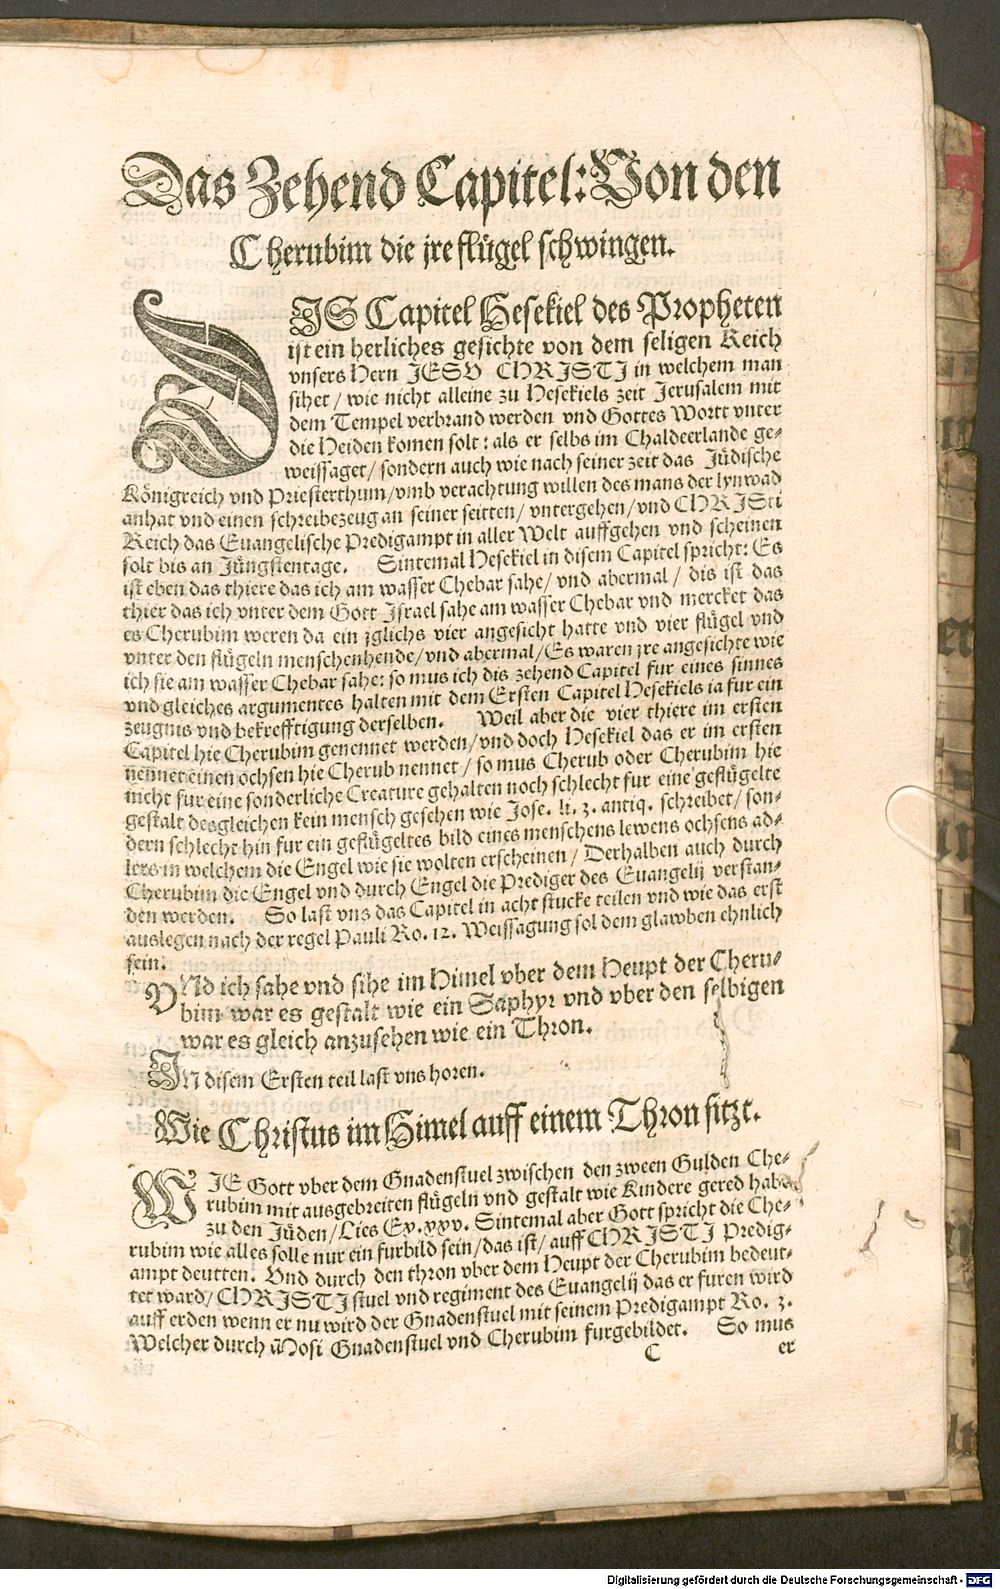 Das Zehend Capitel: Von den
Cherubim die jre flügel schwingen.
DIS Capitel Hesekiel des Propheten
ist ein herliches gesichte von dem seligen Reich
vnsers Hern JESV CHRISTI in welchem man
sihet / wie nicht alleine zu Hesekiels zeit Jerusalem mit
dem Tempel verbrand werden vnd Gottes Wortt vnter
die Heiden komen solt: als er selbs im Chaldeerlande ge-
weissaget / sondern auch wie nach seiner zeit das Jüdische
Königreich vnd Priesterthum / vmb verachtung willen des mans der lynwad
anhat vnd einen schreibezeug an seiner seitten / vntergehen / vnd CHRISti
Reich das Euangelische Predigampt in aller Welt auffgehen vnd scheinen
solt bis an Jüngstentage. Sintemal Hesekiel in disem Capitel spricht: Es
ist eben das thiere das ich am wasser Chebar sahe / vnd abermal / dis ist das
thier das ich vnter dem Gott Israel sahe am wasser Chebar vnd mercket das
es Cherubim weren da ein jglichs vier angesicht hatte vnd vier flügel vnd
vnter den flügeln menschenhende / vnd abermal / Es waren jre angesichte wie
ich sie am wasser Chebar sahe: so mus ich dis zehend Capitel fur eines sinnes
vnd gleiches argumentes halten mit dem Ersten Capitel Hesekiels ia fur ein
zeugnis vnd bekrefftigung derselben. Weil aber die vier thiere im ersten
Capitel hie Cherubim genennet werden / vnd doch Hesekiel das er im ersten
nennet einen ochsen hie Cherub nennet / so mus Cherub oder Cherubim hie
nicht fur eine sonderliche Creature gehalten noch schlecht fur eine geflügelte
gestalt desgleichen kein mensch gesehen wie Jose. li. 3. antiq. schreibet / son-
dern schlecht hin fur ein geflügeltes bild eines menschens lewens ochsens ad-
lers in welchem die Engel wie sie wolten erscheinen / Derhalben auch durch
Cherubim die Engel vnd durch Engel die Prediger des Euangelij verstan-
den werden. So last vns das Capitel in acht stucke teilen vnd wie das erst
auslegen nach der regel Pauli Ro. 12. Weissagung sol dem glawben ehnlich
sein.
VNd ich sahe vnd sihe im Himel vber dem Heupt der Cheru-
bim war es gestalt wie ein Saphyr vnd vber den selbigen
war es gleich anzusehen wie ein Thron.
IN disem Ersten teil last vns horen.
Wie Christus im Himel auff einem Thron sitzt.
WIE Gott vber dem Gnadenstuel zwischen den zween Gulden Che-
rubim mit ausgebreiten flügeln vnd gestalt wie Kindere gered haben
zu den Jüden / Lies Ex. xxv. Sintemal aber Gott spricht die Che-
rubim wie alles solle nur ein furbild sein / das ist / auff CHRISTI Predig-
ampt deutten. Vnd durch den thron vber dem Heupt der Cherubim bedeut-
tet ward / CHRISTI stuel vnd regiment des Euangelij das er furen wird
auff erden wenn er nu wird der Gnadenstuel mit seinem Predigampt Ro. 3.
Welcher durch Mosi Gnadenstuel vnd Cherubim furgebildet. So mus
C er
Digitalisierung gefördert durch die Deutsche Forschungsgemeinschaft - DFG